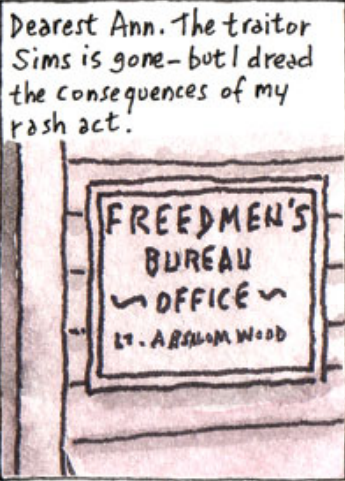 Dearest Ann. The traitor
Sims is gone–but I dread
the consequences of my
rash act.
FREEDMEN'S
BUREAU
~ OFFICE ~
LT. ABSALOM WOOD